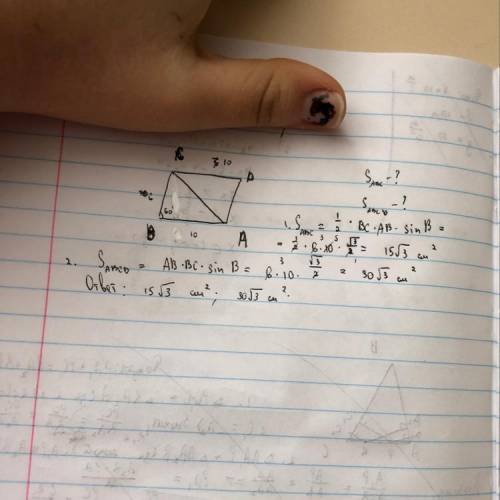 C 10 D
60
B 10 A
S_ABC - ?
S_ABCD - ?
1. S_ABC = 1/2 · BC · AB · sin B =
= 1/2 · 6 · 10 · √3/2 = 15√3 cm²
2. S_ABCD = AB · BC · sin B = 6 · 10 · √3/2 = 30√3 cm²
Ответ: 15√3 cm²; 30√3 cm².